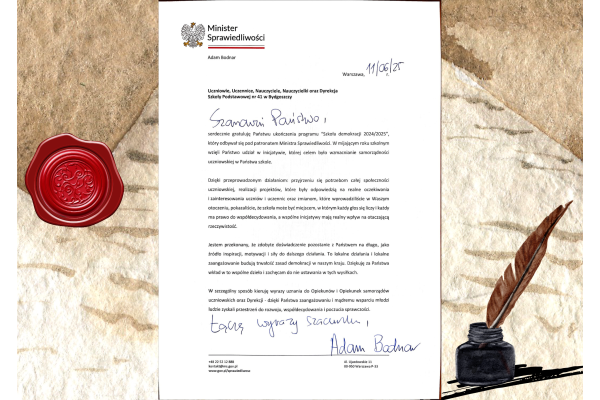 Minister
Sprawiedliwości
Adam Bodnar
Warszawa, 11/06/25
Uczniowie, Uczennice, Nauczyciele, Nauczycielki oraz Dyrekcja
Szkoły Podstawowej nr 41 w Bydgoszczy
Szanowni Państwo,
serdecznie gratuluję Państwu ukończenia programu "Szkoła demokracji 2024/2025",
który odbywał się pod patronatem Ministra Sprawiedliwości. W mijającym roku szkolnym
wzięli Państwo udział w inicjatywie, której celem było wzmacnianie samorządności
uczniowskiej w Państwa szkole.
Dzięki przeprowadzonym działaniom: przyjrzeniu się potrzebom całej społeczności
uczniowskiej, realizacji projektów, które były odpowiedzią na realne oczekiwania
i zainteresowania uczniów i uczennic oraz zmianom, które wprowadziliście w Waszym
otoczeniu, pokazaliście, że szkoła może być miejscem, w którym każdy głos się liczy i każdy
ma prawo do współdecydowania, a wspólne inicjatywy mają realny wpływ na otaczającą
rzeczywistość.
Jestem przekonany, że zdobyte doświadczenie pozostanie z Państwem na długo, jako
źródło inspiracji, motywacji i siły do dalszego działania. To lokalne działania i lokalne
zaangażowanie budują trwałość zasad demokracji w naszym kraju. Dziękuję za Państwa
wkład w to wspólne dzieło i zachęcam do nie ustawania w tych wysiłkach.
W szczególny sposób kieruję wyrazy uznania do Opiekunów i Opiekunek samorządów
uczniowskich oraz Dyrekcji - dzięki Państwa zaangażowaniu i mądremu wsparciu młodzi
ludzie zyskali przestrzeń do rozwoju, współdecydowania i poczucia sprawczości.
Łączę wyrazy szacunku,
Adam Bodnar
+48 22 52 12 888
kontakt@ms.gov.pl
www.gov.pl/sprawiedliwosc
Al. Ujazdowskie 11
00-950 Warszawa P 33